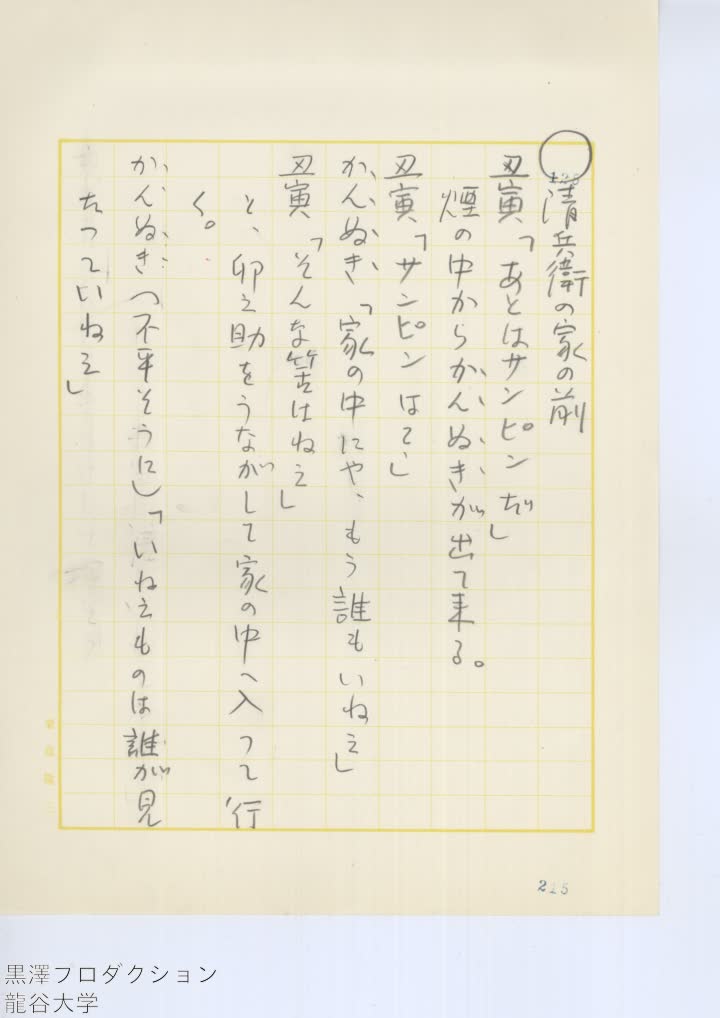 清兵衛の家の前
丑寅「あとはサンピンだ」
煙の中からかんぬきが出て来る。
丑寅「サンピンはて」
かんぬき「家の中にや、もう誰もいねえ」
丑寅「そんな筈はねえ」
と、卯之助をうながして家の中へ入って行
く。
かんぬき(不平そうに)「いねえものは誰が見
たっていねえ」
225
黒澤プロダクション
龍谷大学